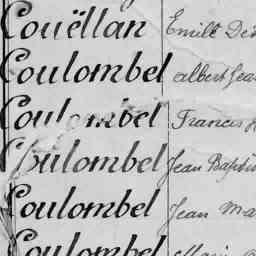 Couëllan Emile
Coulombel albert
Coulombel Francis
Coulombel Jean Baptis
Coulombel Jean Ma
Coulombel